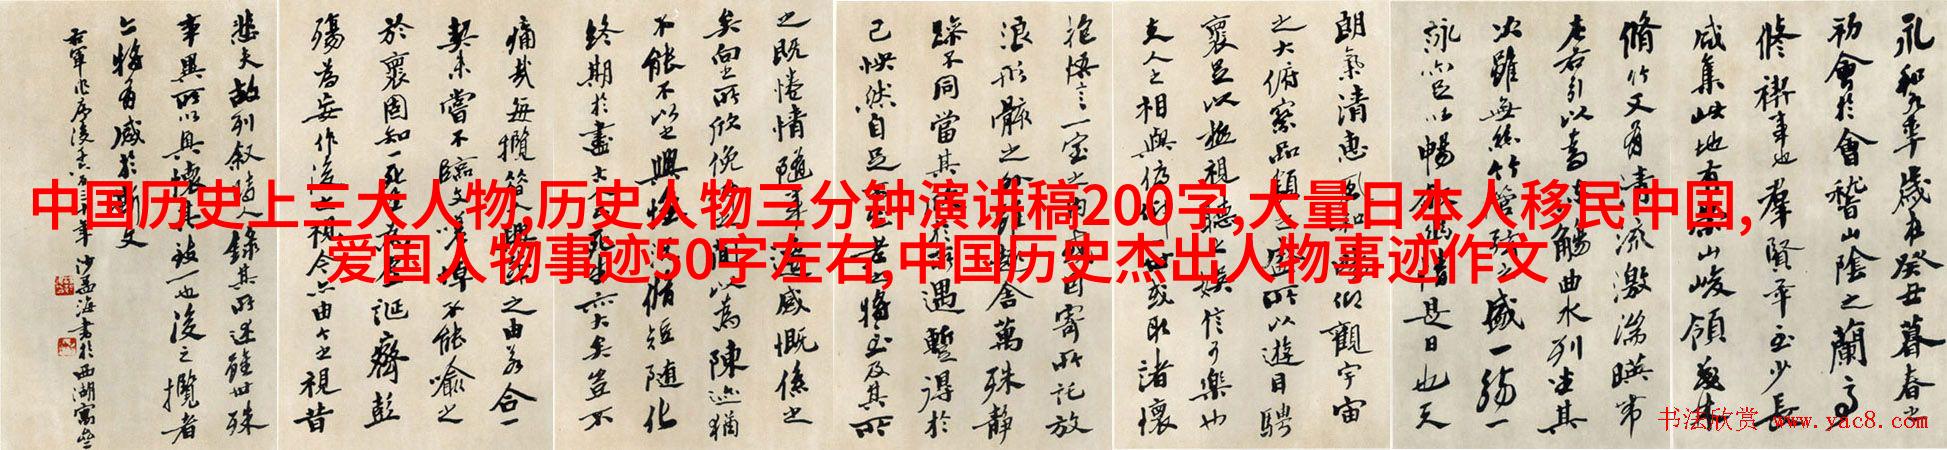 中国历史上三大人物,历史人物三分钟演讲稿200字,大量日本人移民中国,
爱国人物事迹50字左右,中国历史杰出人物事迹作文
永和九年歲在癸丑暮春之
初會於會稽山陰之蘭亭
修禊事也羣賢畢至少長
咸集此地有崇山峻領茂林
脩竹又有清流激湍暎帶
左右引以為流觴曲水列坐其
次雖無絲竹管弦之盛一觴一
詠亦足以暢敘幽情是日也天
朗氣清惠風和暢仰觀宇宙
之大俯察品類之盛所以遊目騁
襄足以極視聽之娛信可樂也
夫人之相與俯仰一世或取諸懷
抱悟言一室之內或因寄所託放
浪形骸之外雖趣舍萬殊靜
躁不同當其欣於所遇暫得於
己怏然自足不知老之將至及其所
之既惓情隨事遷感慨係之
矣向之所欣俛仰之間以為陳迹猶
不能不以之興懷況脩短隨化
終期於盡古人云死生亦大矣豈不
痛哉每攬昔人興感之由若合一
契未嘗不臨文嗟悼不能喻之
於襄固知一死生為虛誕齊彭
殤為妄作後之視今亦由今之視昔
悲夫故列叙時人錄其所述雖世殊
事異所以興懷其致一也後之攬者
亦將有感於斯文
右軍作序 沙孟海書於西湖寓
书法欣赏 www.yac8.com